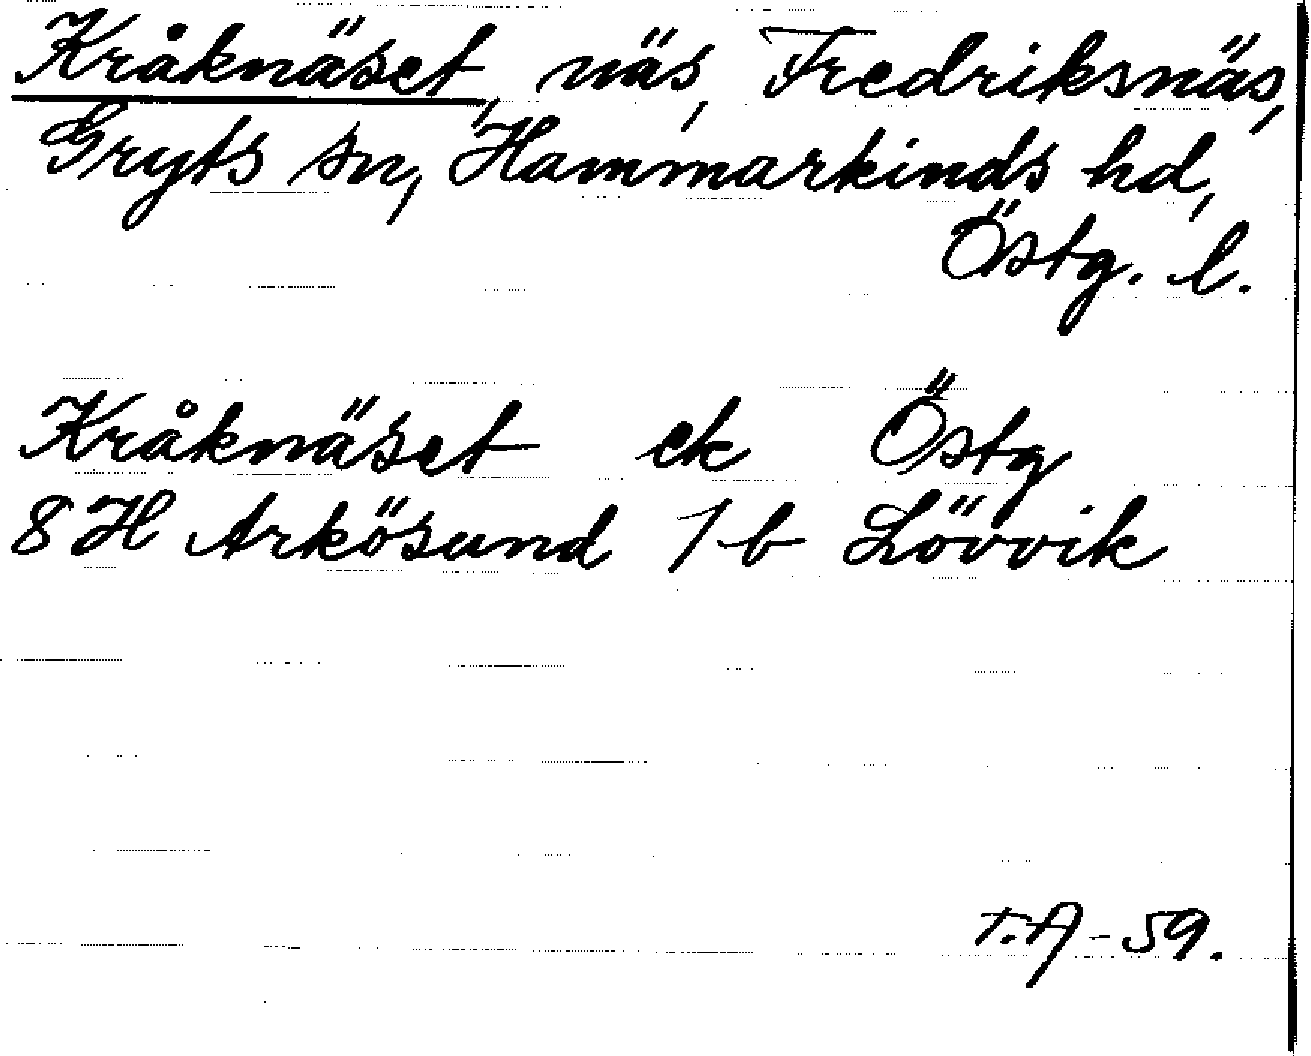 Kråknäset, näs, Fredriksnäs,
Gryts sn, Hammarkinds hd,
Östg. l.
Kråknäset ek Östg
8 H Arkösund 7 b Lövvik
T.A-59.